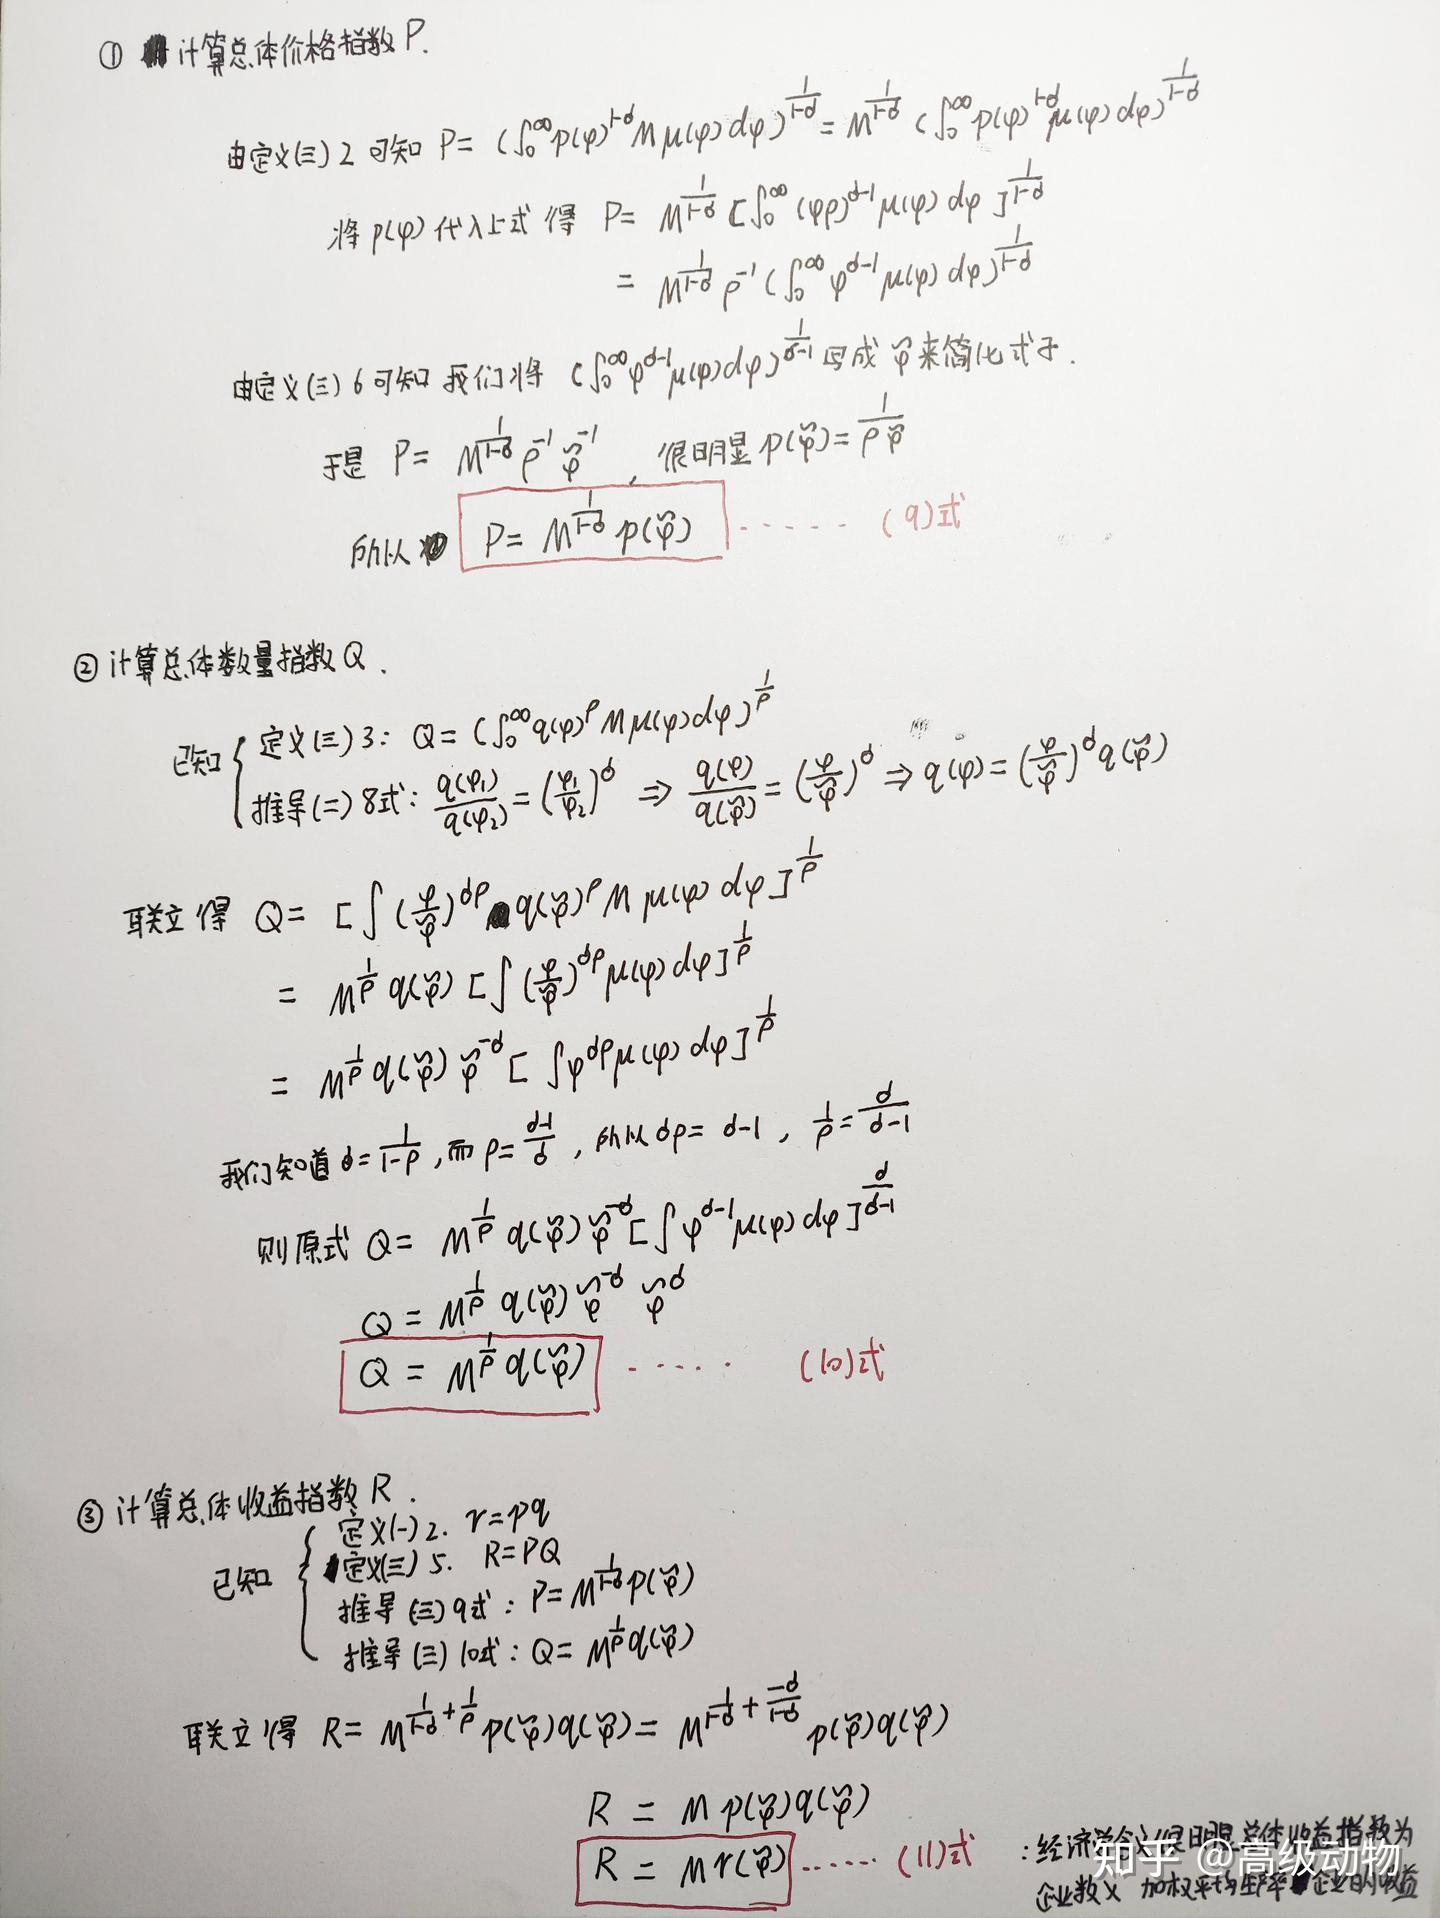 ① 计算总体价格指数 P.
由定义(三) 2 可知 P = (∫₀^∞ p(φ)^{1-σ} M μ(φ) dφ)^{\frac{1}{1-σ}} = M^{\frac{1}{1-σ}} (∫₀^∞ p(φ)^{1-σ} μ(φ) dφ)^{\frac{1}{1-σ}}
将 p(φ) 代入上式 得 P = M^{\frac{1}{1-σ}} [∫₀^∞ (φρ)^{σ-1} μ(φ) dφ]^{\frac{1}{1-σ}}
= M^{\frac{1}{1-σ}} ρ^{-1} (∫₀^∞ φ^{σ-1} μ(φ) dφ)^{\frac{1}{1-σ}}
由定义(三) 6 可知 我们将 (∫₀^∞ φ^{σ-1} μ(φ) dφ)^{\frac{1}{σ-1}} 写成 φ̃ 来简化式子.
于是 P = M^{\frac{1}{1-σ}} ρ^{-1} φ̃^{-1} , 很明显 p(φ̃) = \frac{1}{ρφ̃}
所以 P = M^{\frac{1}{1-σ}} p(φ̃) ······ (9)式
② 计算总体数量指数 Q .
已知 { 定义(三) 3: Q = (∫₀^∞ q(φ)^ρ M μ(φ) dφ)^{\frac{1}{ρ}}
推导(二) 8式: \frac{q(φ₁)}{q(φ₂)} = (\frac{φ₁}{φ₂})^σ ⇒ \frac{q(φ)}{q(φ̃)} = (\frac{φ}{φ̃})^σ ⇒ q(φ) = (\frac{φ}{φ̃})^σ q(φ̃)
联立得 Q = [∫ (\frac{φ}{φ̃})^{σρ} q(φ̃)^ρ M μ(φ) dφ]^{\frac{1}{ρ}}
= M^{\frac{1}{ρ}} q(φ̃) [∫ (\frac{φ}{φ̃})^{σρ} μ(φ) dφ]^{\frac{1}{ρ}}
= M^{\frac{1}{ρ}} q(φ̃) φ̃^{-σ} [∫ φ^{σρ} μ(φ) dφ]^{\frac{1}{ρ}}
我们知道 σ = \frac{1}{1-ρ} , 而 ρ = \frac{σ-1}{σ} , 所以 σρ = σ-1 , \frac{1}{ρ} = \frac{σ}{σ-1}
则原式 Q = M^{\frac{1}{ρ}} q(φ̃) φ̃^{-σ} [∫ φ^{σ-1} μ(φ) dφ]^{\frac{σ}{σ-1}}
Q = M^{\frac{1}{ρ}} q(φ̃) φ̃^{-σ} φ̃^σ
Q = M^{\frac{1}{ρ}} q(φ̃) ······ (10)式
③ 计算总体收益指数 R .
已知 { 定义(一) 2. r = pq
定义(三) 5. R = PQ
推导(三) 9式: P = M^{\frac{1}{1-σ}} p(φ̃)
推导(三) 10式: Q = M^{\frac{1}{ρ}} q(φ̃)
联立得 R = M^{\frac{1}{1-σ}+\frac{1}{ρ}} p(φ̃) q(φ̃) = M^{\frac{1}{1-σ}+\frac{-σ}{1-σ}} p(φ̃) q(φ̃)
R = M p(φ̃) q(φ̃)
R = M r(φ̃) ······ (11)式 : 经济学含义很明显 总体收益指数为
企业数 × 加权平均生产率企业的收益
知乎 @高级动物